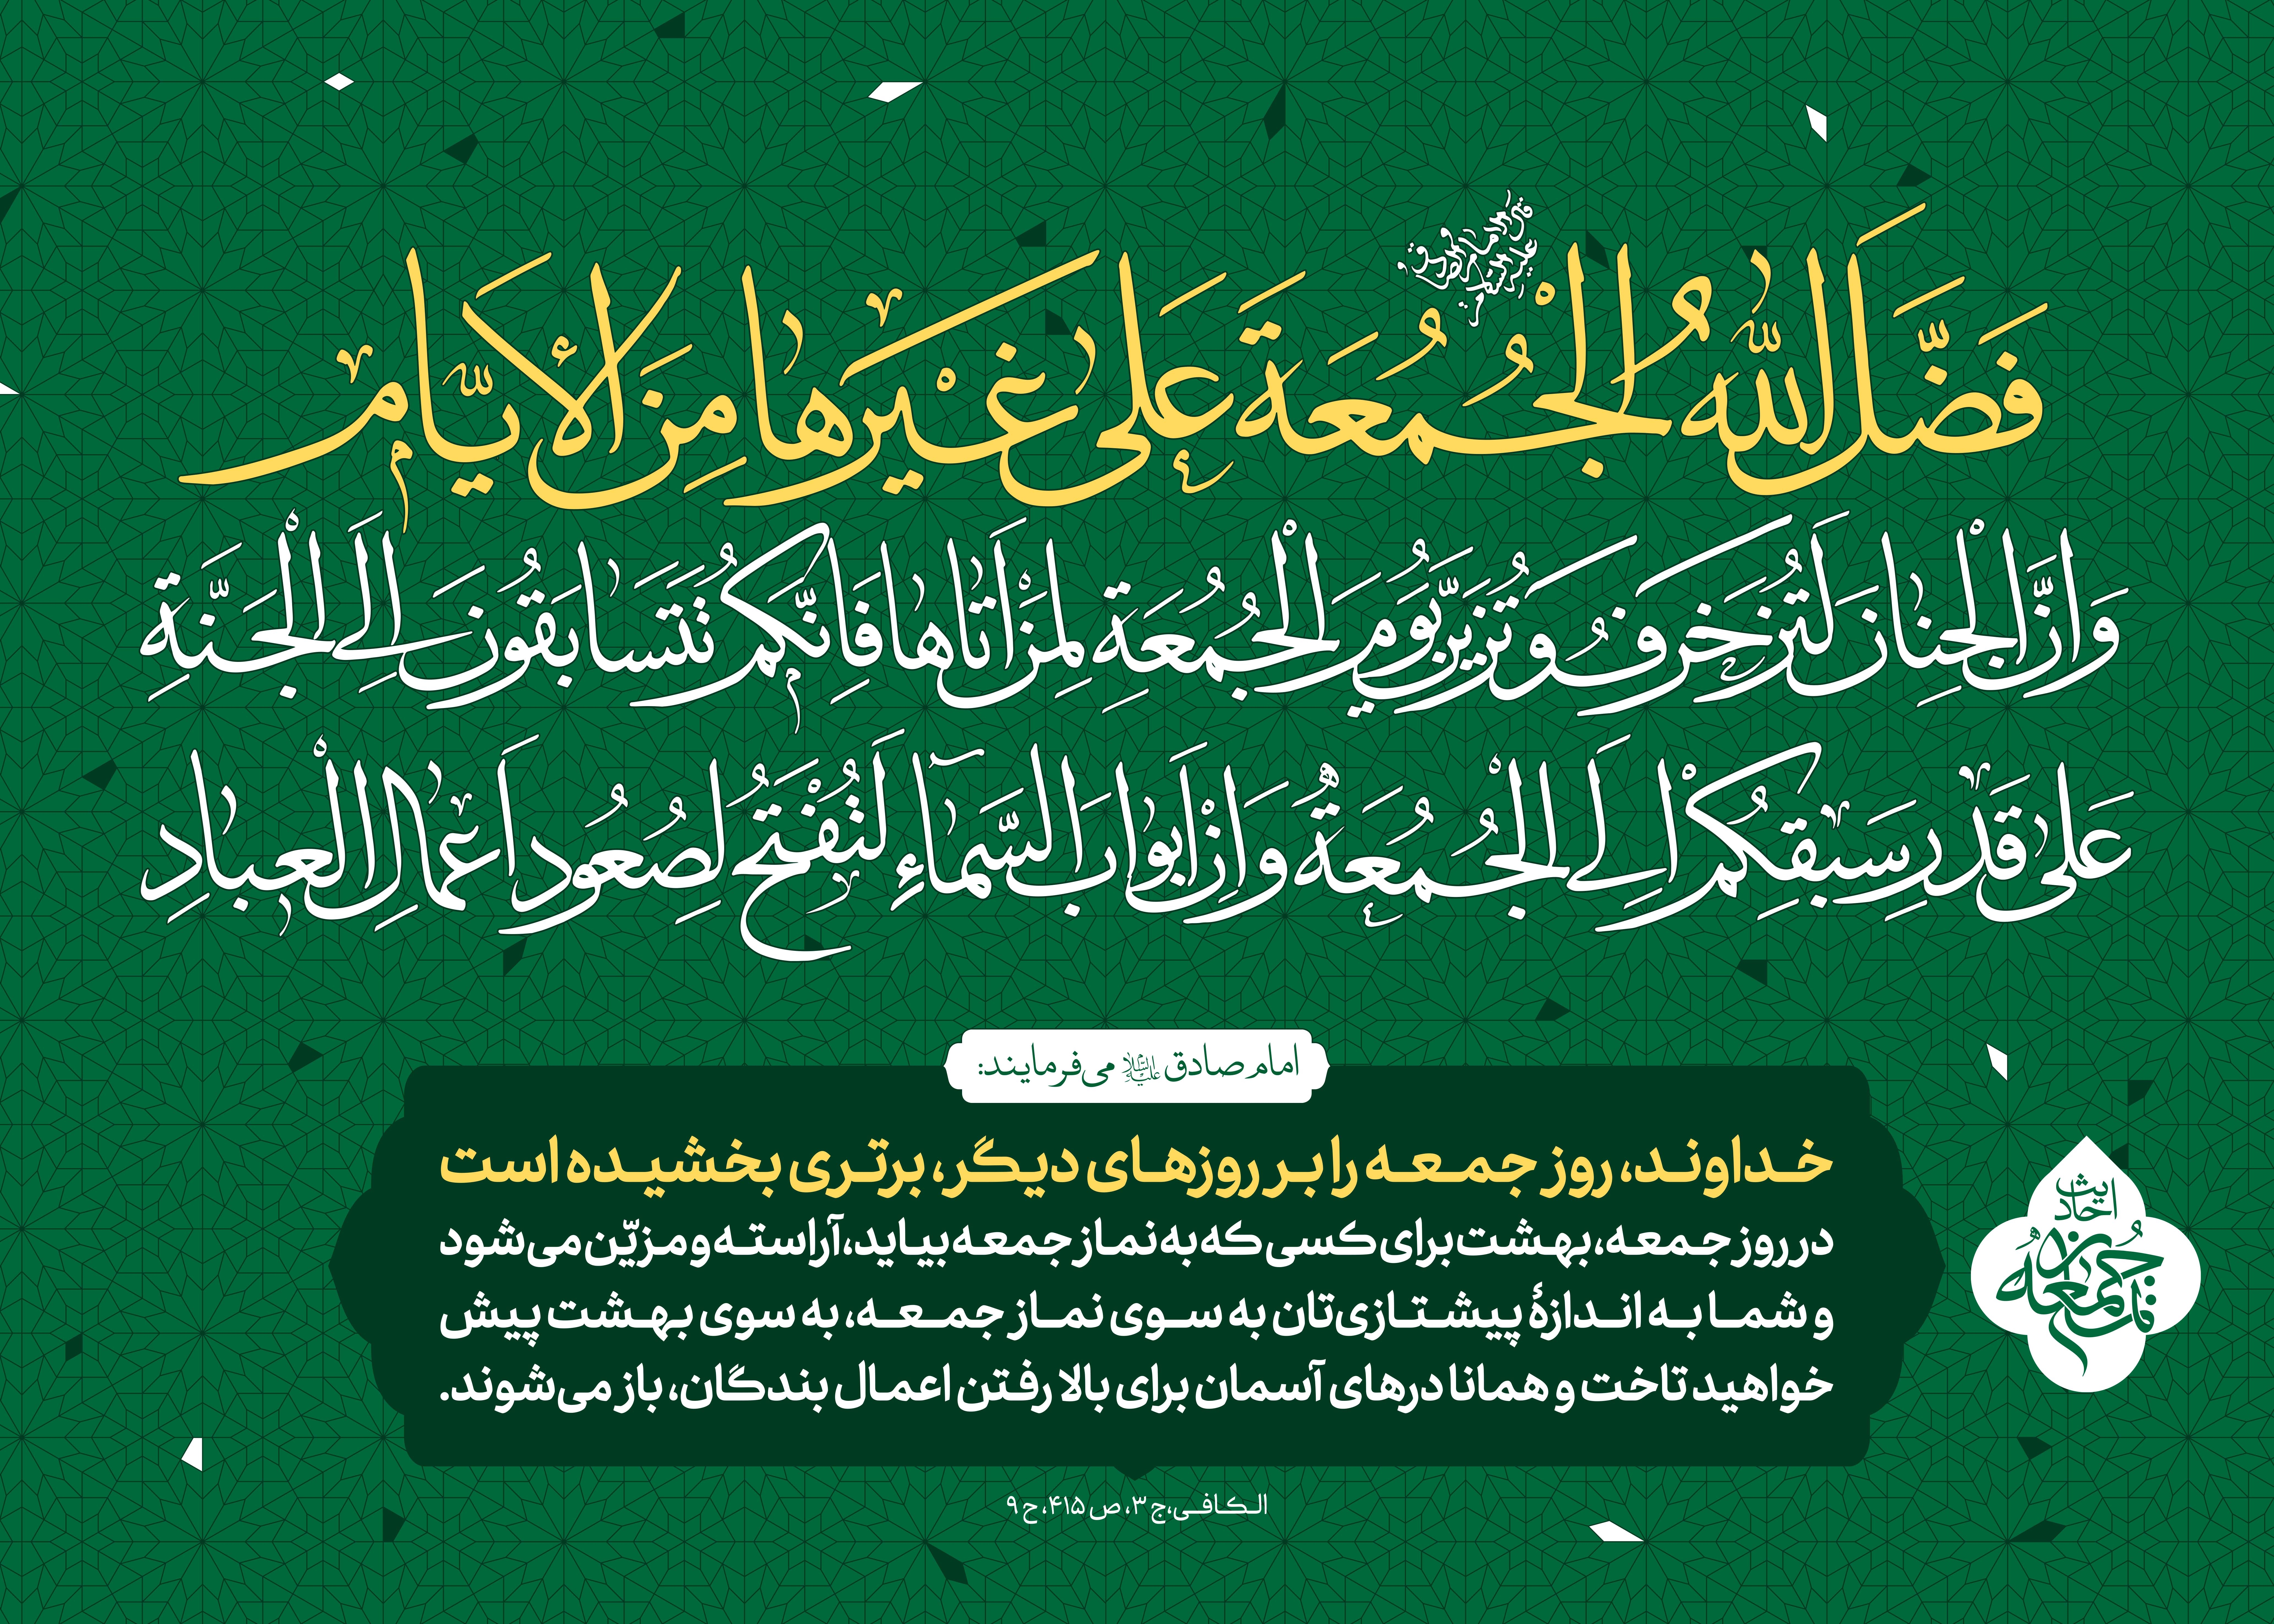 قال الامام الصادق علیه السلام
فَضَّلَ اللهُ الْجُمُعَةَ عَلى غَيْرِها مِنَ الأَيّام
وَاِنَّ الْجِنانَ لَتُزَخرَفُ وَتُزَيَّنُ يَومَ الْجُمُعَةِ لِمَنْ اَتاها فَاِنَّكُم تَتَسابَقُونَ اِلَى الْجَنَّةِ
عَلى قَدْرِ سَبْقِكُمْ اِلَى الْجُمُعَةِ وَاِنَّ اَبْوابَ السَّماءِ لَتُفْتَحُ لِصُعُودِ اَعْمالِ الْعِبادِ
امام صادق علیه السلام می‌فرمایند:
خداوند، روز جمعه را بر روزهای دیگر، برتری بخشیده است
در روز جمعه، بهشت برای کسی که به نماز جمعه بیاید، آراسته و مزیّن می‌شود
و شما به اندازهٔ پیشتازی‌تان به سوی نماز جمعه، به سوی بهشت پیش
خواهید تاخت و همانا درهای آسمان برای بالا رفتن اعمال بندگان، باز می‌شوند.
احادیث
نماز جمعه
الکافی، ج ۳، ص ۴۱۵، ح ۹